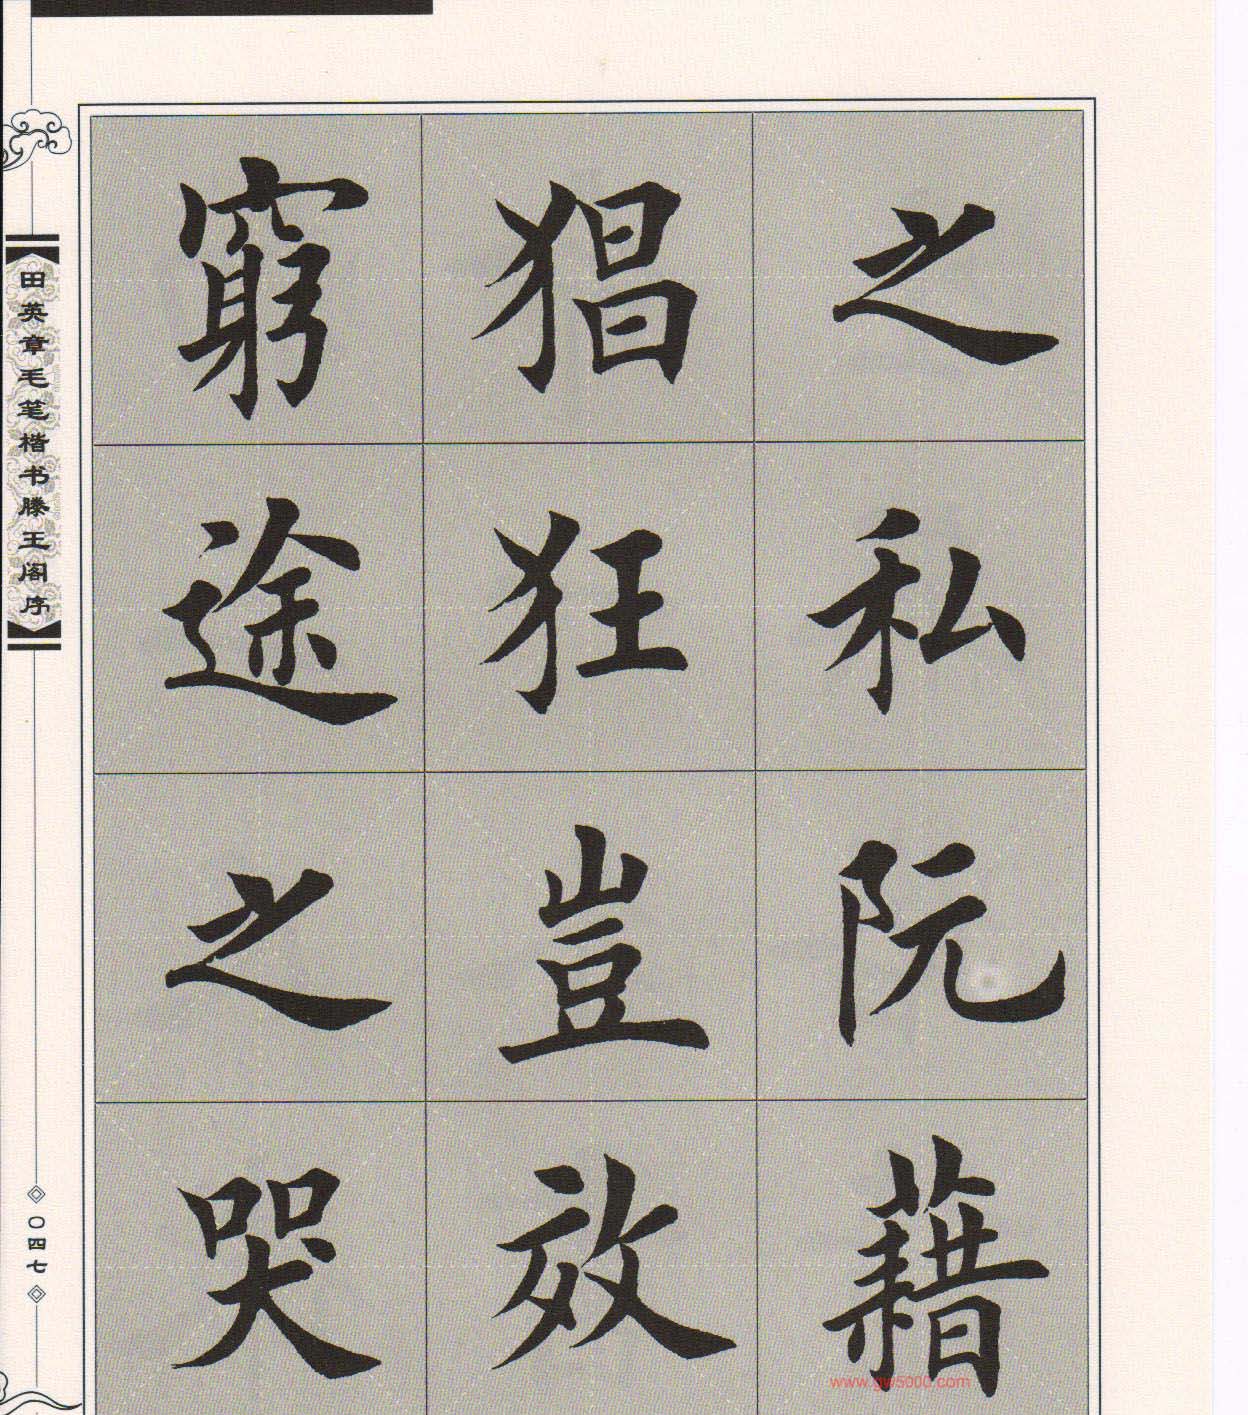 之私阮藉
猖狂豈效
窮途之哭
田英章毛笔楷书滕王阁序
〇四七
www.gw5000.com